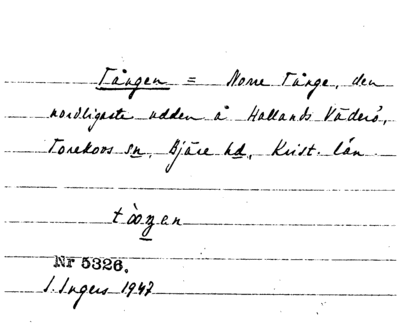 Tången = Norre Tånge, den
nordligaste udden å Hallands Väderö,
Torekovs sn, Bjäre hd, Krist. län.
Nr 5326.
I. Ingers 1947